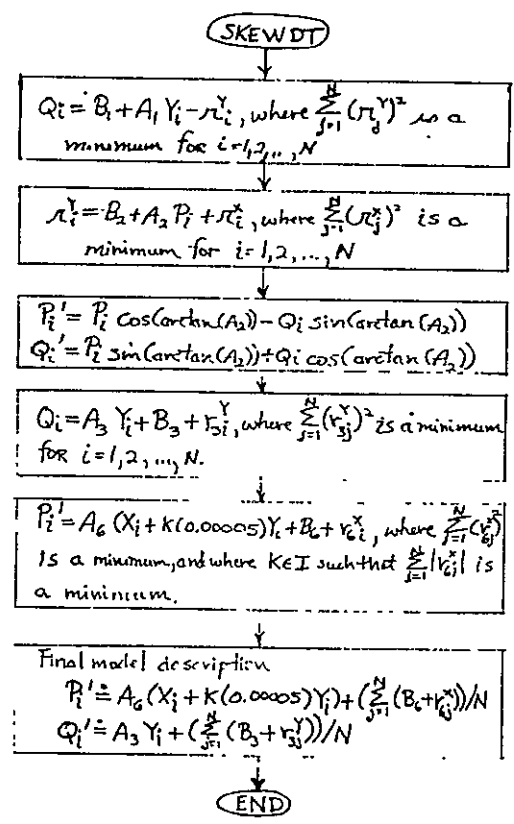 SKEWDT
Qi = B1 + A1 Yi - r_i^Y, where Σ_{j=1}^{N} (r_j^Y)² is a
minimum for i=1,2,..,N
r_i^Y = B2 + A2 Pi + r_i^x, where Σ_{j=1}^{N} (r_j^x)² is a
minimum for i=1,2,...,N
Pi' = Pi cos(arctan(A2)) - Qi sin(arctan(A2))
Qi' = Pi sin(arctan(A2)) + Qi cos(arctan(A2))
Qi = A3 Yi + B3 + r_3i^Y, where Σ_{j=1}^{N} (r_3j^Y)² is a minimum
for i=1,2,...,N.
Pi' = A6 (Xi + K(0.00005)Yi + B6 + r_6i^x, where Σ_{j=1}^{N} (r_6j^x)²
is a minimum, and where K∈I such that Σ_{j=1}^{N} |r_6j^x| is
a minimum.
Final model description
Pi' ≐ A6 (Xi + K(0.00005)Yi) + (Σ_{j=1}^{N} (B6 + r_6j^x))/N
Qi' ≐ A3 Yi + (Σ_{j=1}^{N} (B3 + r_3j^Y))/N
END